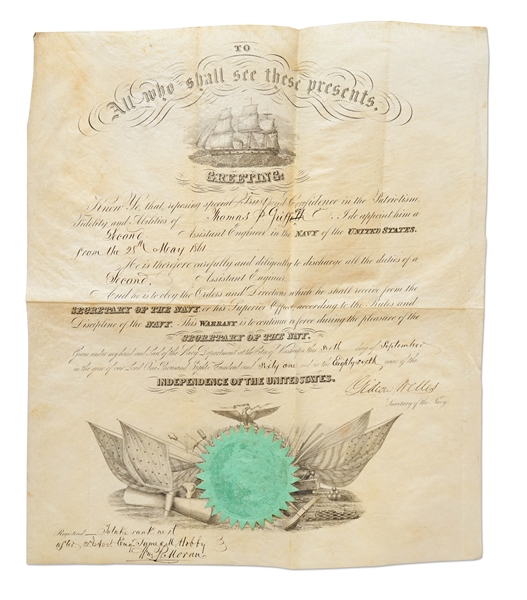 TO
All who shall see these presents,
GREETING:
Know Ye, that reposing special Trust and Confidence in the Patriotism
Fidelity and Abilities of Thomas P. Griffith I do appoint him a
Second Assistant Engineer in the NAVY of the UNITED STATES.
from the 28th May 1861
He is therefore carefully and diligently to discharge all the duties of a
Second Assistant Engineer
And he is to obey the Orders and Directions which he shall receive from the
SECRETARY OF THE NAVY, or his Superior Officer according to the Rules and
Discipline of the NAVY. THIS WARRANT is to continue in force during the pleasure of the
SECRETARY OF THE NAVY.
Given under my hand and Seal of the Navy Department at the City of Washington this day of September
in the year of our Lord One Thousand Eight Hundred and Sixty one and in the Eighty sixth year of the
INDEPENDENCE OF THE UNITED STATES.
Gideon Welles
Secretary of the Navy
Registered to take rank next
after James M. Hobby
Wm. P. Moran